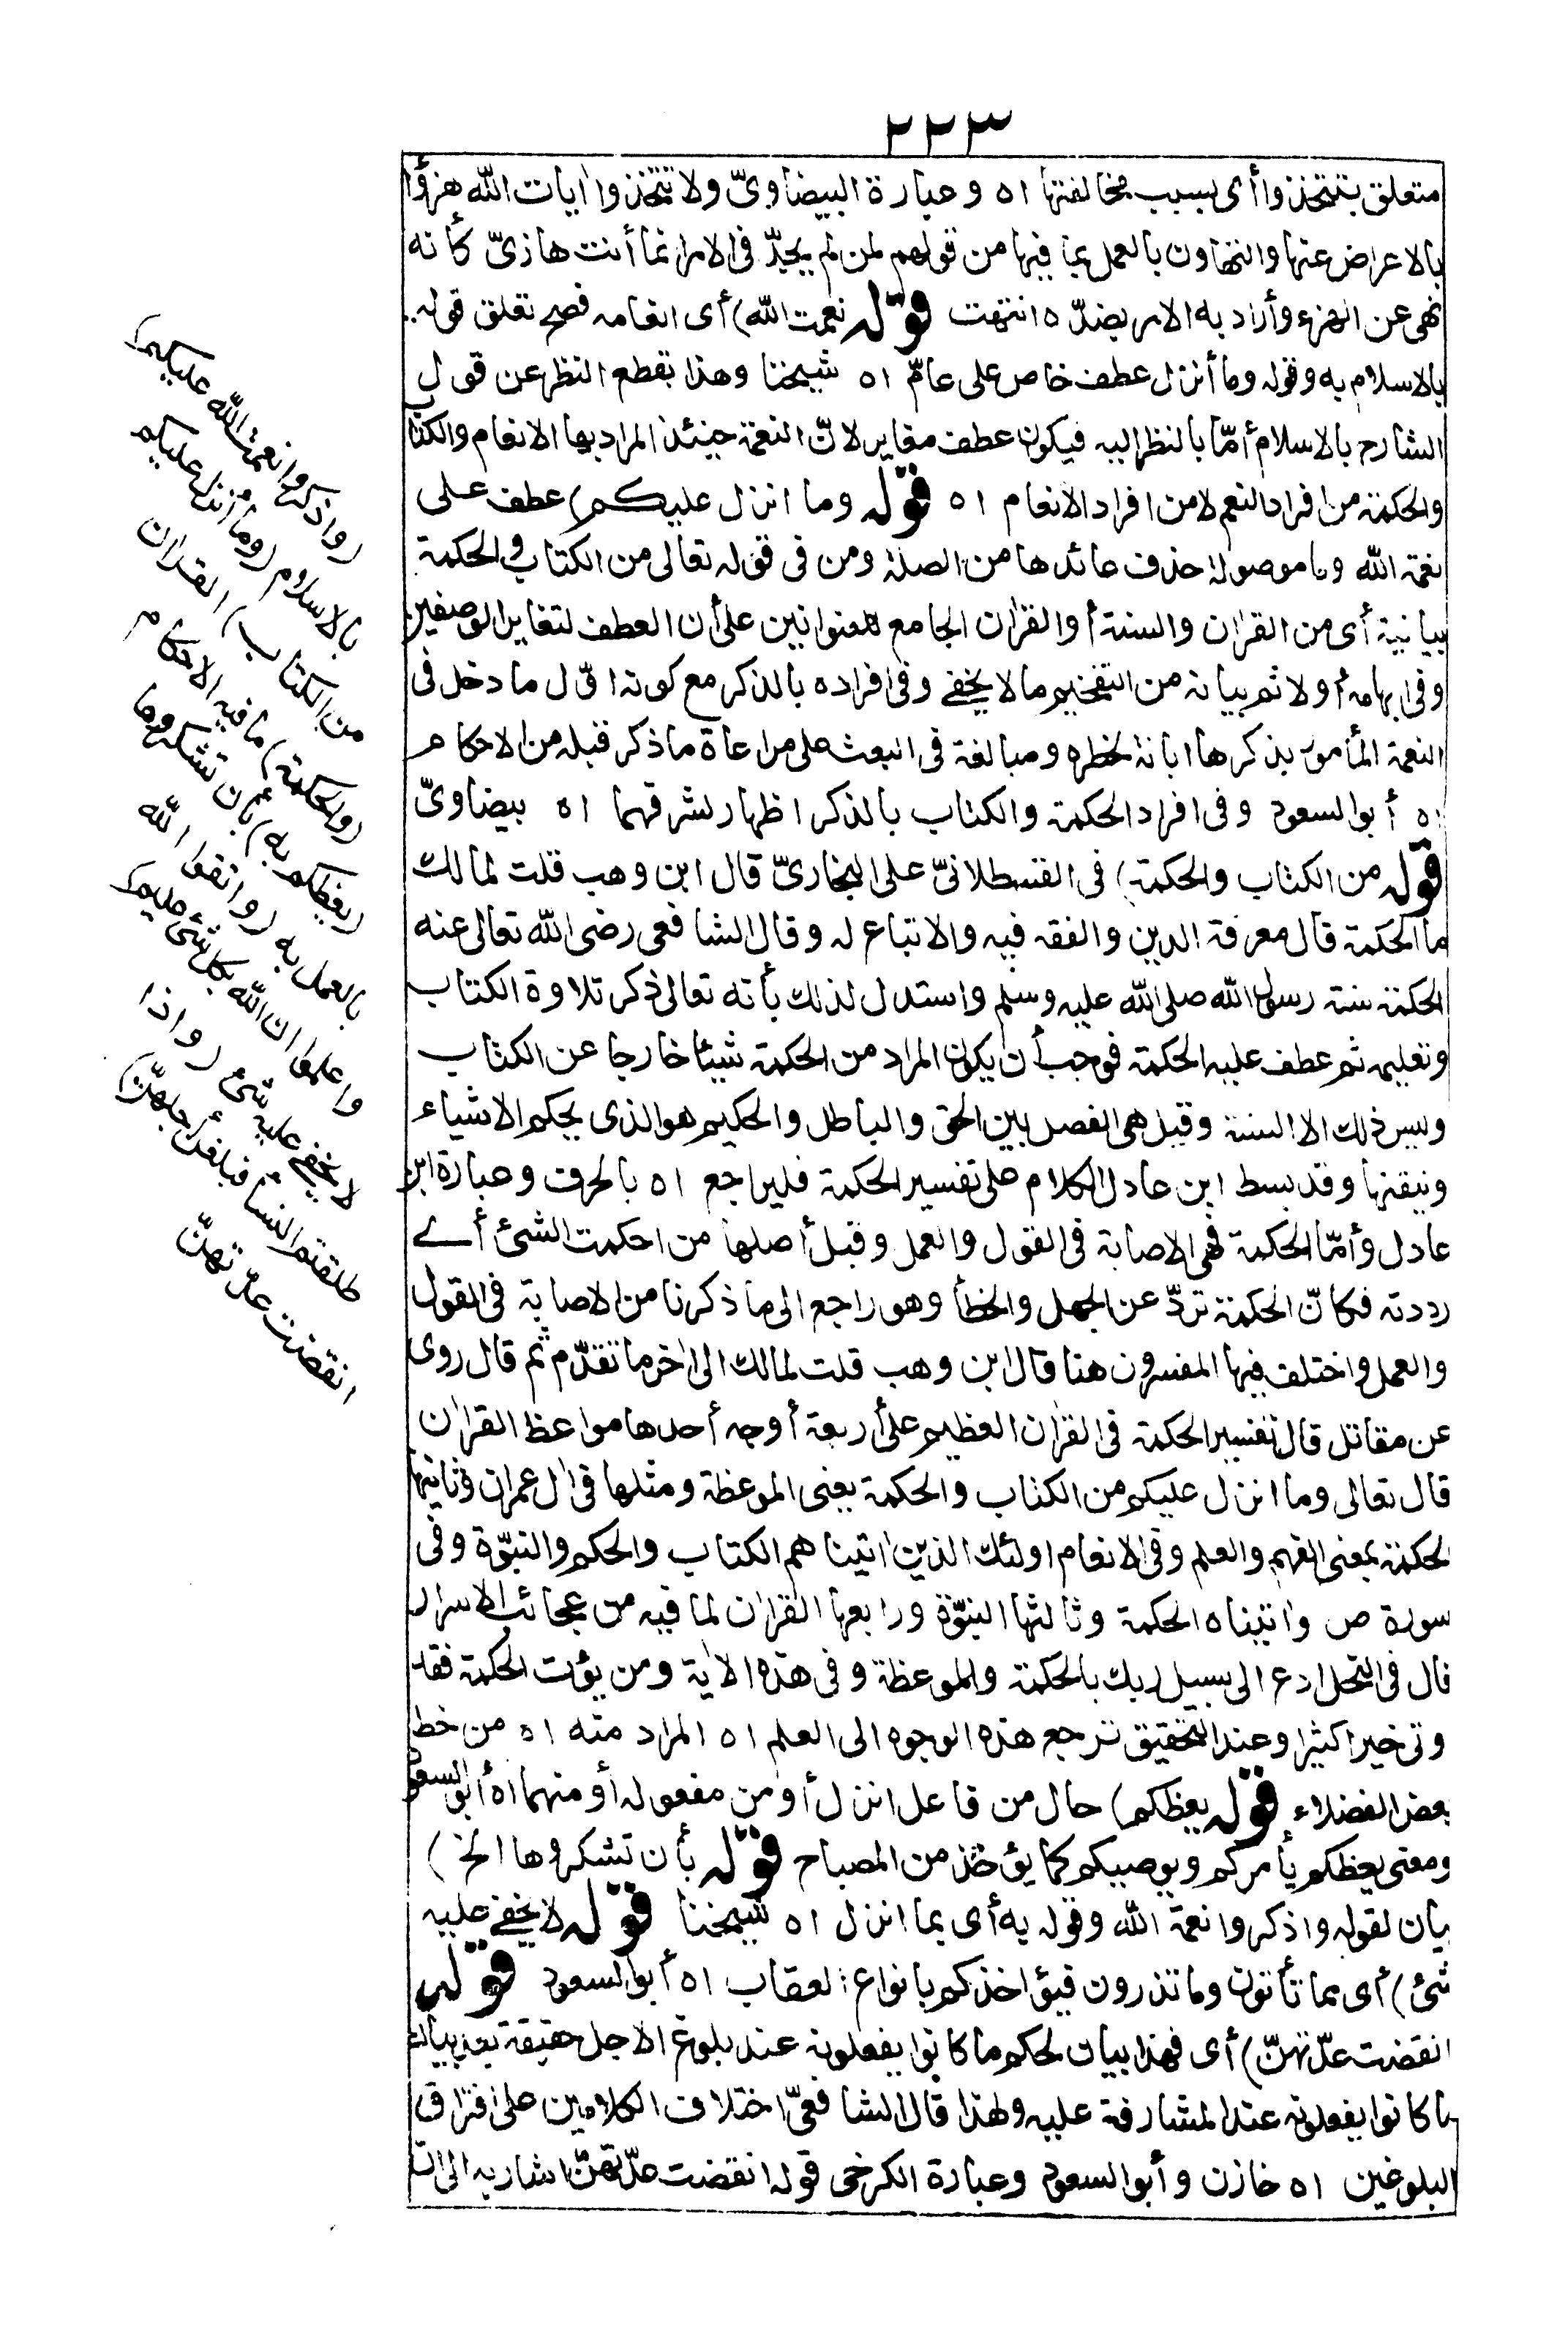 ٢٢٣
متعلق بتتخذوا أى بسبب مخالفتها اه وعبارة البيضاوىّ ولا تتخذوا اٰيات الله هزؤا
بالاعراض عنها والتهاون بالعمل بما فيها من قولهم لمن لم يجدّ فى الامر انما أنت هازئ كأنه
نهى عن الهزء وأراد به الامر بضدّه انتهت قوله نعمت الله) أى انعامه فصح تعلق قوله
بالاسلام به وقوله وما أنزل عطف خاص على عامّ اه شيخنا وهذا بقطع النظر عن قول
الشارح بالاسلام أمّا بالنظر اليه فيكون عطف مغاير لانّ النعمة حينئذ المراد بها الانعام والكتاب
والحكمة من افراد النعم لا من افراد الانعام اه قوله وما انزل عليكم) عطف على
نعمة الله وما موصولة حذف عائدها من الصلة ومن فى قوله تعالى من الكتاب والحكمة
بيانية أى من القراٰن والسنة أو القراٰن الجامع للعنوانين على أن العطف لتغاير الوصفين
وفى ابهامه أولا ثم بيانه من التفخيم ما لا يخفے وفى افراده بالذكر مع كونه اوّل ما دخل فى
النعمة المأمور بذكرها ابانة لخطره ومبالغة فى البعث على مراعاة ما ذكر قبله من الاحكام
اه أبو السعود وفى افراد الحكمة والكتاب بالذكر اظهار لشرفهما اه بيضاوىّ
قوله من الكتاب والحكمة) فى القسطلانىّ على البخارىّ قال ابن وهب قلت لمالك
ما الحكمة قال معرفة الدين والفقه فيه والاتباع له وقال الشافعى رضى الله تعالى عنه
الحكمة سنة رسول الله صلى الله عليه وسلم واستدل لذلك بأنه تعالى ذكر تلاوة الكتاب
وتعليمه ثم عطف عليه الحكمة فوجب أن يكون المراد من الحكمة شيئا خارجا عن الكتاب
وليس ذلك الا السنة وقيل هى الفصل بين الحق والباطل والحكيم هو الذى يحكم الاشياء
ويتقنها وقد بسط ابن عادل الكلام على تفسير الحكمة فليراجع اه بالحرف وعبارة ابن
عادل وأمّا الحكمة فهى الاصابة فى القول والعمل وقيل أصلها من احكمت الشئ أے
رددته فكانّ الحكمة تردّ عن الجهل والخطأ وهو راجع الى ما ذكرنا من الاصابة فى القول
والعمل واختلف فيها المفسرون هنا قال ابن وهب قلت لمالك الى اٰخر ما تقدّم ثم قال روى
عن مقاتل قال تفسير الحكمة فى القراٰن العظيم على أربعة أوجه أحدها مواعظ القراٰن
قال تعالى وما انزل عليكم من الكتاب والحكمة يعنى الموعظة ومثلها فى اٰل عمران وثانيتها
الحكمة بمعنى الفهم والعلم وفى الانعام اولئك الذين اٰتيناهم الكتاب والحكم والنبوّة وفى
سورة ص واٰتيناه الحكمة وثالثها النبوّة ورابعها القراٰن لما فيه من عجائب الاسرار
قال فى النحل ادع الى سبيل ربك بالحكمة والموعظة وفى هذه الاٰية ومن يؤت الحكمة فقد
وتى خيرا كثيرا وعند التحقيق ترجع هذه الوجوه الى العلم اه المراد منه اه من خط
بعض الفضلاء قوله يعظكم) حال من فاعل انزل أو من مفعوله أو منهما اه أبو السعود
ومعنى يعظكم يأمركم ويوصيكم كما يؤخذ من المصباح قوله بأن تشكروها الخ)
بيان لقوله واذكروا نعمة الله وقوله به أى بما انزل اه شيخنا قوله لا يخفے عليه
شئ) أى مما تأتون وما تذرون فيؤاخذكم بانواع العقاب اه أبو السعود قوله
انقضت عدّتهنّ) أى فهذا بيان لحكم ما كانوا يفعلونه عند بلوغ الاجل حقيقة بعد بيان
ما كانوا يفعلونه عند المشارفة عليه ولهذا قال الشافعىّ اختلاف الكلامين على افتراق
البلوغين اه خازن وأبو السعود وعبارة الكرخى قوله انقضت عدّتهنّ اشار به الى انّ
(واذكروا نعمت الله عليكم)
بالاسلام (وما أنزل عليكم
من الكتاب) القراٰن
(والحكمة) ما فيه الاحكام
(يعظكم به) بأن تشكروها
بالعمل به (واتقوا الله
واعلموا ان الله بكل شئ عليم)
لا يخفے عليه شئ (واذا
طلقتم النسأ فبلغن أجلهنّ)
انقضت عدّتهنّ